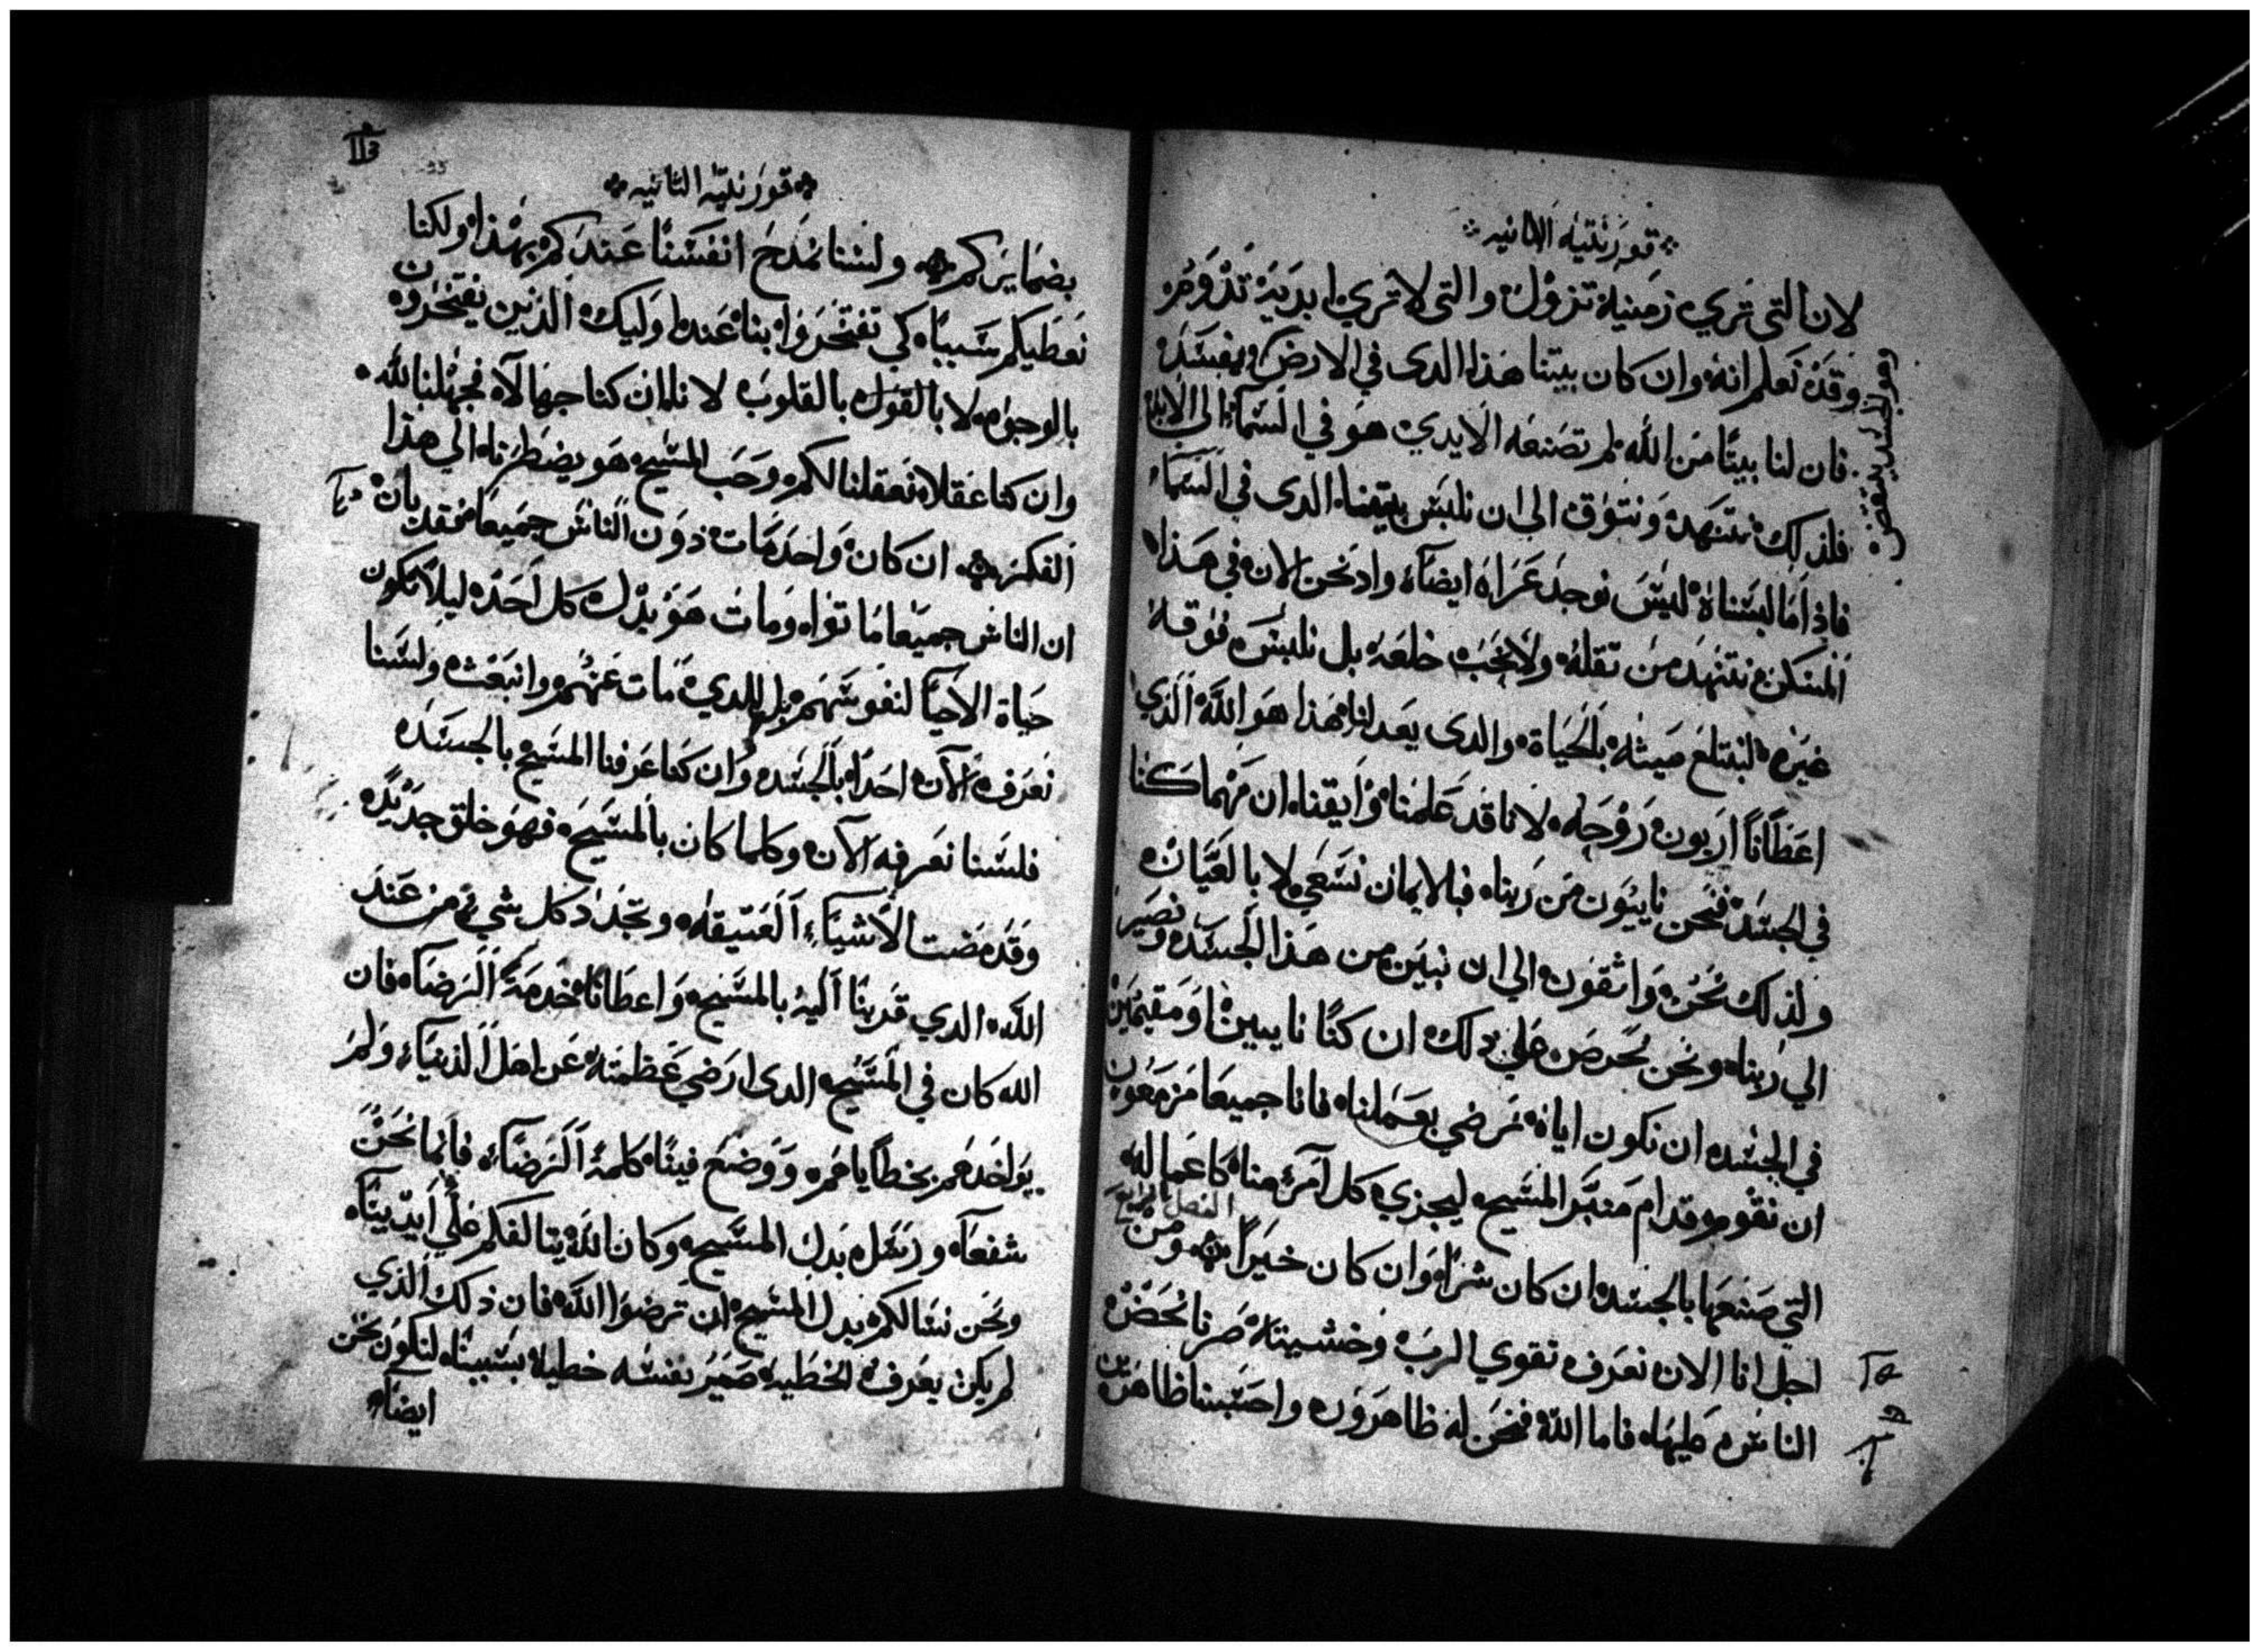 قورنتيه الثانيه
لان التي تري زمنية تزول والتي لا تري ابدية تدوم
وقد نعلم انه وان كان بيتنا هذا الدى في الارض يفسد
وهو الجسد ينتقض
فان لنا بيتا من الله لم تصنعه الايدي هو في السماء الى الابد
فلذلك نتنهد ونتوق الى ان نلبس بيتنا الدى في السماء
فاذا ما لبسناه ليس نوجد عراه ايضا واد نحن الان في هذا
المسكن نتنهد من ثقله ولا نحب خلعه بل نلبس فوقه
غيره لتبتلع ميته بالحياة والدى يعدلنا هذا هو الله الذي
اعطانا اربون روحه لانا قد علمنا وايقنا ان مهما كنا
في الجسد فنحن نايبون من ربنا فبالايمان نسعي لا بالعيان
ولذلك نحن واثقون الي ان نبين من هذا الجسد ونصير
الي ربنا ونحن نحرص علي ذلك ان كنا نايبين او مقيمين
في الجسد ان نكون اياه نرضي بعملنا فانا جميعا مزمعون
ان نقوم قدام منبر المسيح ليجزي كل امرء منا كاعماله
الفصل الرابع
التي صنعها بالجسد ان كان شرا وان كان خيرا ومن
اجل انا الان نعرف تقوي الرب وخشيته صرنا نحض
الناس عليها فاما الله فنحن له ظاهرون واحتسبنا ظاهرين
قورنتيه الثانيه
بضمايركم ولسنا نمدح انفسنا عندكم بهذا ولكنا
نعطيكم سببا كي تفتخروا بنا عند اوليك الذين يفتخرون
بالوجوه لا بالقول بالقلوب لاننا ان كنا جهالا فجهلنا لله
وان كنا عقلا فعقلنا لكم وحب المسيح هو يضطرنا الي هذا
الفكر ان كان واحد مات دون الناس جميعا فقد بان
ان الناس جميعا ماتوا ومات هو بدل كل احد ليلا تكون
حياة الاحيا لنفوسهم بل للدي مات عنهم وانبعث ولسنا
نعرف الان احدا بالجسد وان كنا عرفنا المسيح بالجسد
فلسنا نعرفه الان وكلما كان بالمسيح فهو خلق جديد
وقد مضت الاشياء العتيقه وتجدد كل شي من عند
الله الدي قربنا اليه بالمسيح واعطانا خدمة الرضا فان
الله كان في المسيح الدى ارضي عظمته عن اهل الدنياء ولم
يواخدهم بخطاياهم ووضع فينا كلمة الرضاء فانما نحن
شفعا ورسل بدل المسيح وكان الله يتالفكم علي ايدينا
ونحن نسالكم بدل المسيح ان ترضوا الله فان ذلك الذي
لم يكن يعرف الخطيه صير نفسه خطية بسببنا لنكون نحن
ايضا